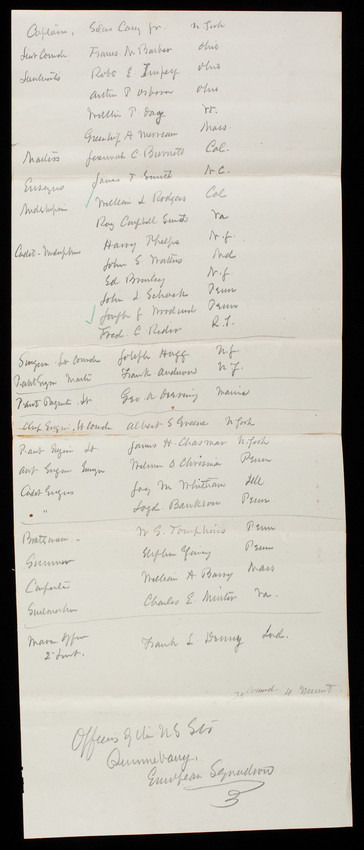 Captain, Silas Casey Jr. N York
Lieut Comdr Francis M Barber Ohio
Lieutenants Robt E Impey Ohio
Arthur P Osborn Ohio
Willie P Day Vt.
Greenlief A Merriam Mass.
Masters Jeremiah C Burnett Cal.
Ensigns James T Smith N.C.
Midshipmen William L Rodgers Cal
Roy Campbell Smith Va
Cadet-Midshipmen Harry Phelps N.J.
John G. Md
Ed N.J.
John L Schock Penn
Joseph J Woodward Penn
Fred. C. Rider R.I.
Surgeon Lt Comdr Joseph Hugg N.J.
Past Surgn Master Frank Anderson N.J.
Past Lt Geo A Deering Maine
Chf Engin. Lt Comdr Albert S Greene N York
Past Engin Lt James H. Chasmar N York
Ast Engin Ensign William D Penn
Cadet Engins Jay M. Whitham Ill
" Lloyd Bankson Penn
Boatswain - W G. Tompkins Penn
Gunner Stephen Young Penn
Carpenter William A Barry Mass
Sailmaker Charles E. Va.
Marine Officer Frank L. Denny Ind.
2d Lieut.
Officers of the US Str
Quinnebaug,
European Squadron